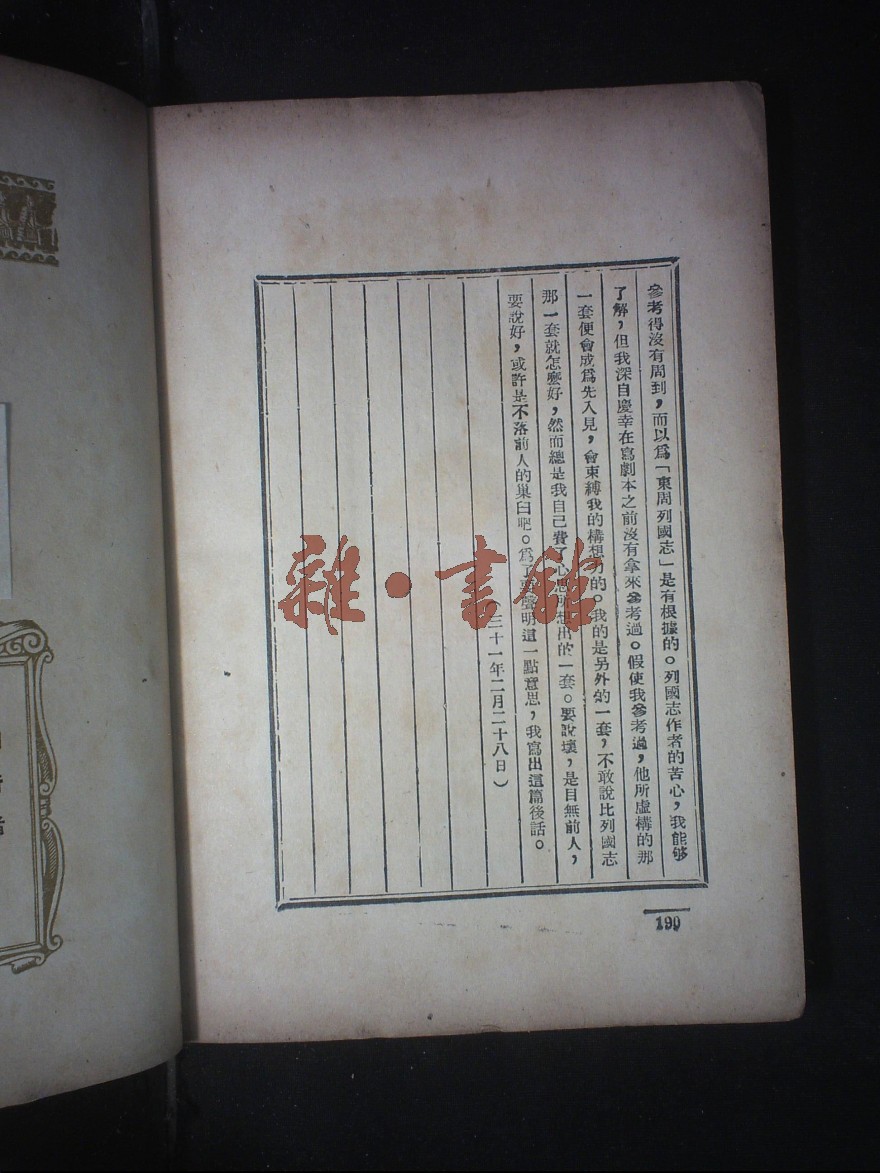 參考得沒有周到，而以爲「東周列國志」是有根據的。列國志作者的苦心，我能够
了解，但我深自慶幸在寫劇本之前沒有拿來參考過。假使我參考過，他所虛構的那
一套便會成爲先入見，會束縛我的構想力的。我的是另外的一套，不敢說比列國志
那一套就怎麼好，然而總是我自己費了心思所想出的一套。要說壞，是目無前人，
要說好，或許是不落前人的巢臼吧。爲了要聲明這一點意思，我寫出這篇後話。
（三十一年二月二十八日）
190
雜·書館